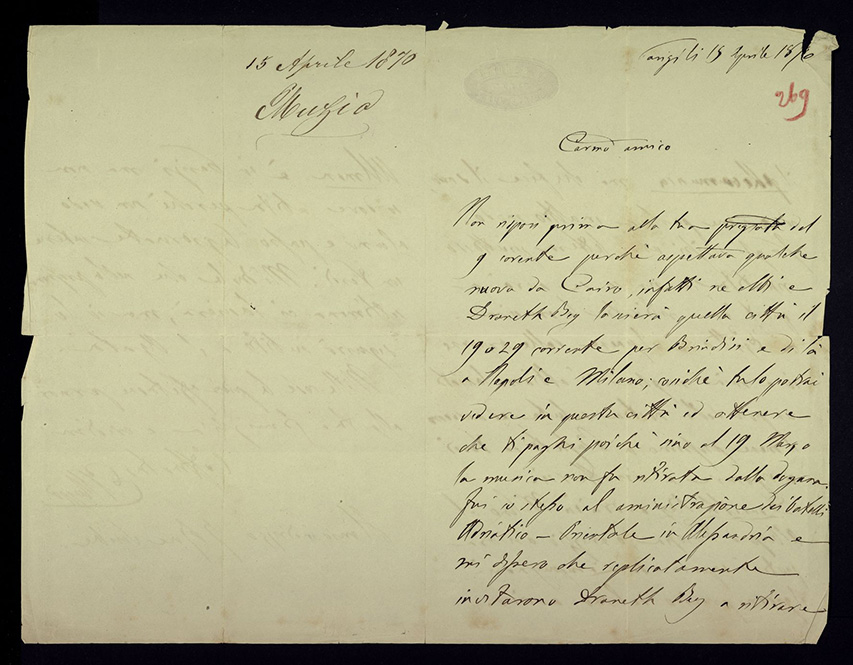 15 Aprile 1870
Muzio
Parigi li 15 Aprile 1870
269
Carmo amico
Non risposi prima alla tua pregiata del
9 corente perchè aspettava qualche
nuova da Cairo, infatti ne ebbi e
Draneth Bey lascierà quella città il
19 o 29 corrente per Brindisi e di là
a Napoli e Milano; cosichè tu lo potrai
vedere in questa città ed ottenere
che ti paghi poichè sino al 19 Marzo
la musica non fu ritirata dalla dogana.
fui io stesso al aministrazione dei batelli
Adriatico - Orientale in Alessandria e
mi dissero che replicatamente
invitarono Draneth Bey a ritirare